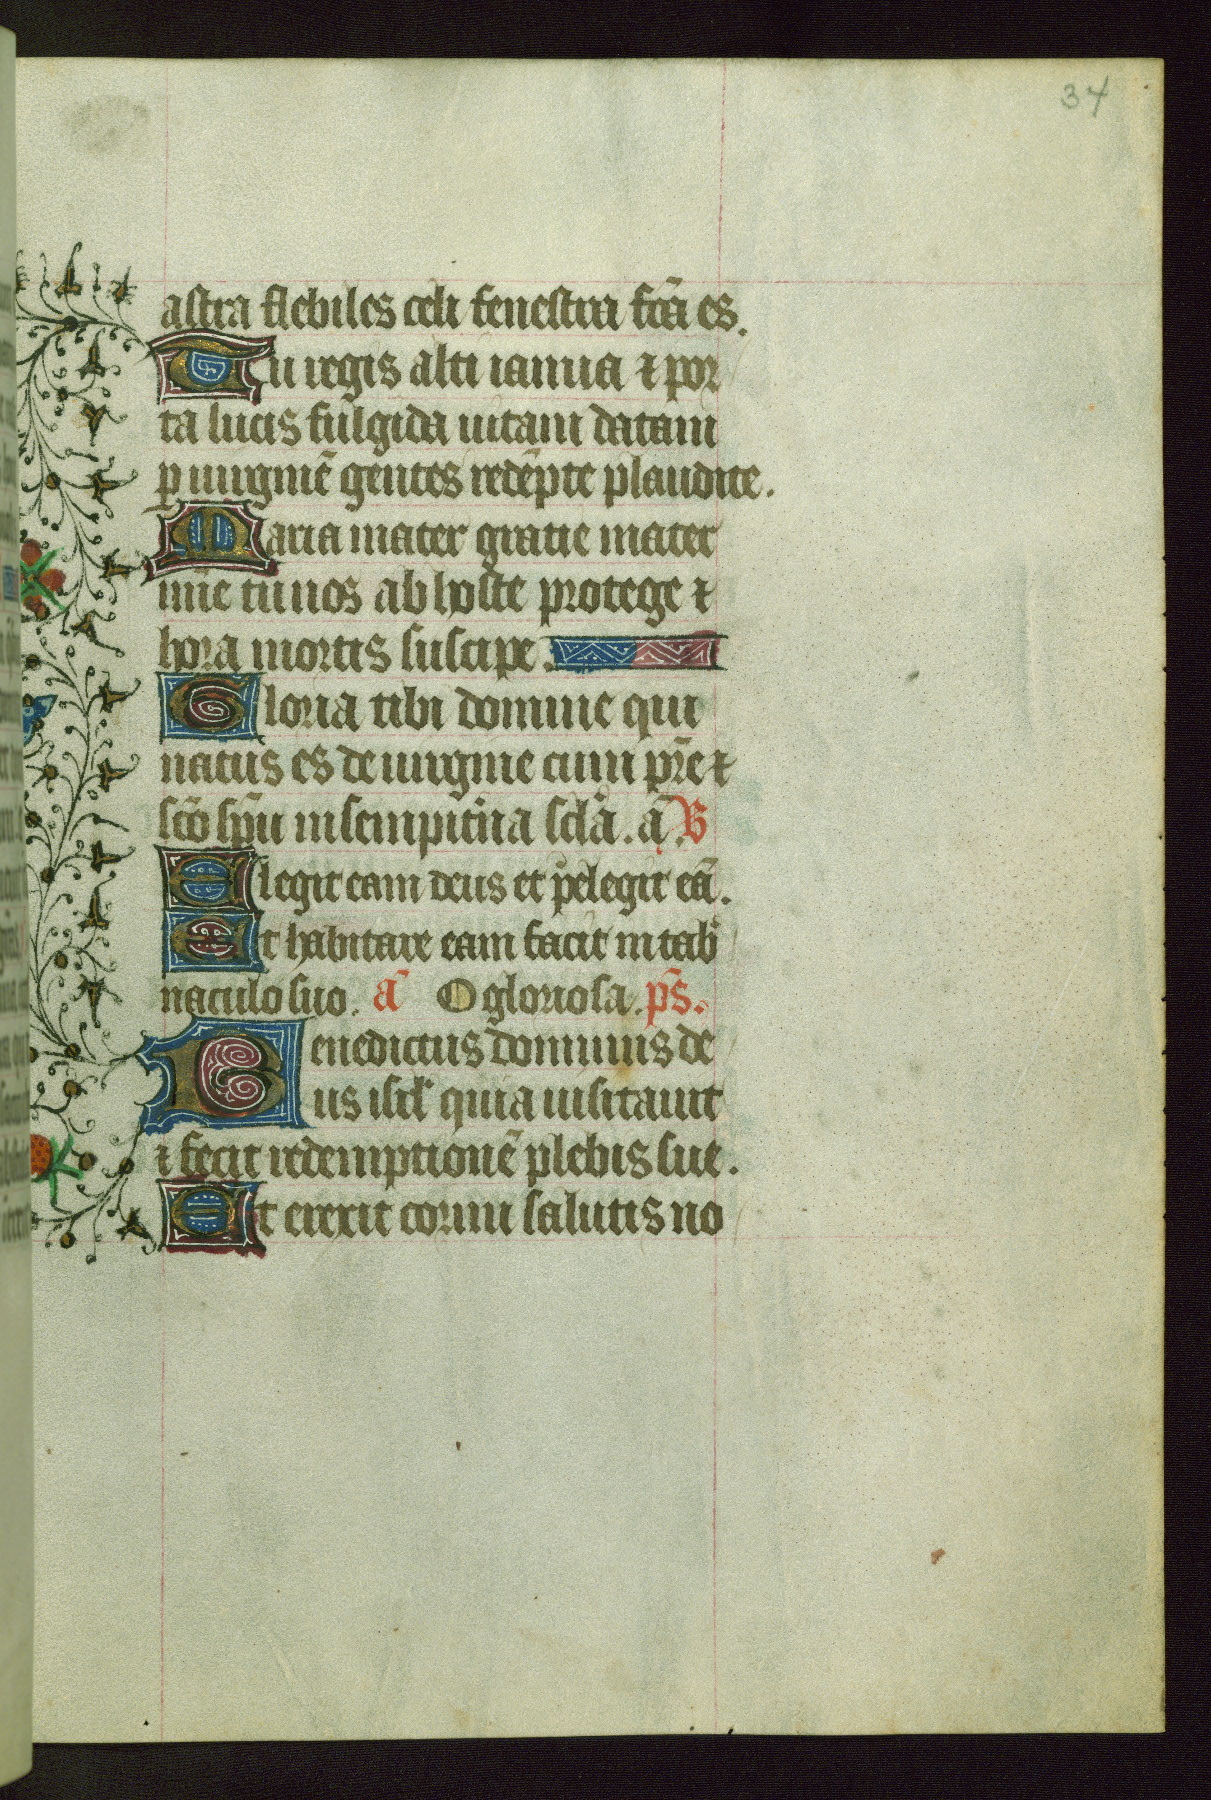 34
astra flebiles celi fenestra fc̄a es.
Tu regis alti ianua ⁊ por
ta lucis fulgida uitam datam
ꝑ uirginē gentes redēpte plaudite.
Maria mater gratie mater
mīe tu nos ab hoste protege ⁊
hora mortis suscipe.
Gloria tibi domine qui
natus es de uirgine cum pr̄e ⁊
sc̄o sp̄u in sempit̄na sc̄la. a. V̄
Elegit eam deus et p̄elegit eā.
Et habitare eam facit in tab̄
naculo suo. a͞ O gloriosa. ps̄.
Benedictus dominus de
us isrl̄ quia uisitauit
⁊ fecit redemptionē plebis sue.
Et erexit cornu salutis no